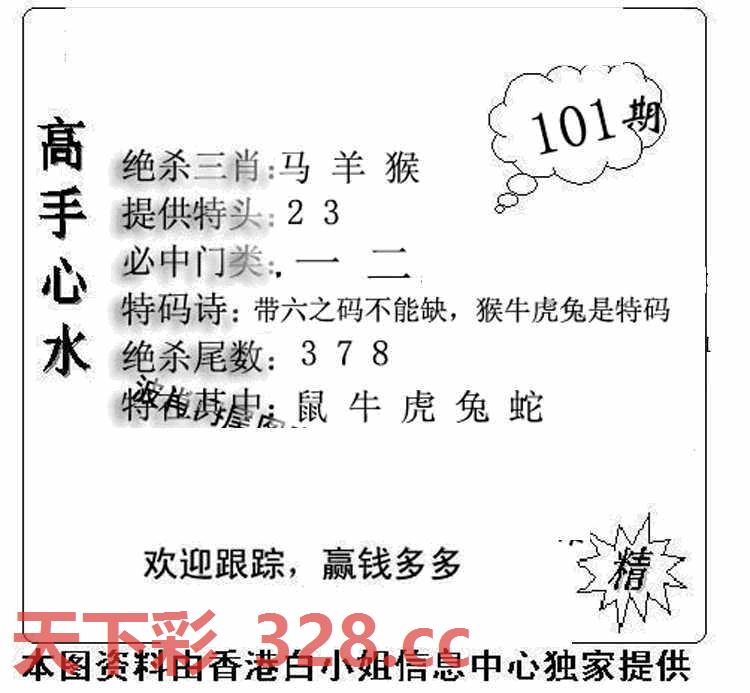 101期
高手心水
绝杀三肖:马 羊 猴
提供特头:2 3
必中门类:一 二
特码诗:带六之码不能缺,猴牛虎兔是特码
绝杀尾数:3 7 8
特在其中:鼠 牛 虎 兔 蛇
欢迎跟踪，赢钱多多
精
天下彩 328.cc
本图资料由香港白小姐信息中心独家提供